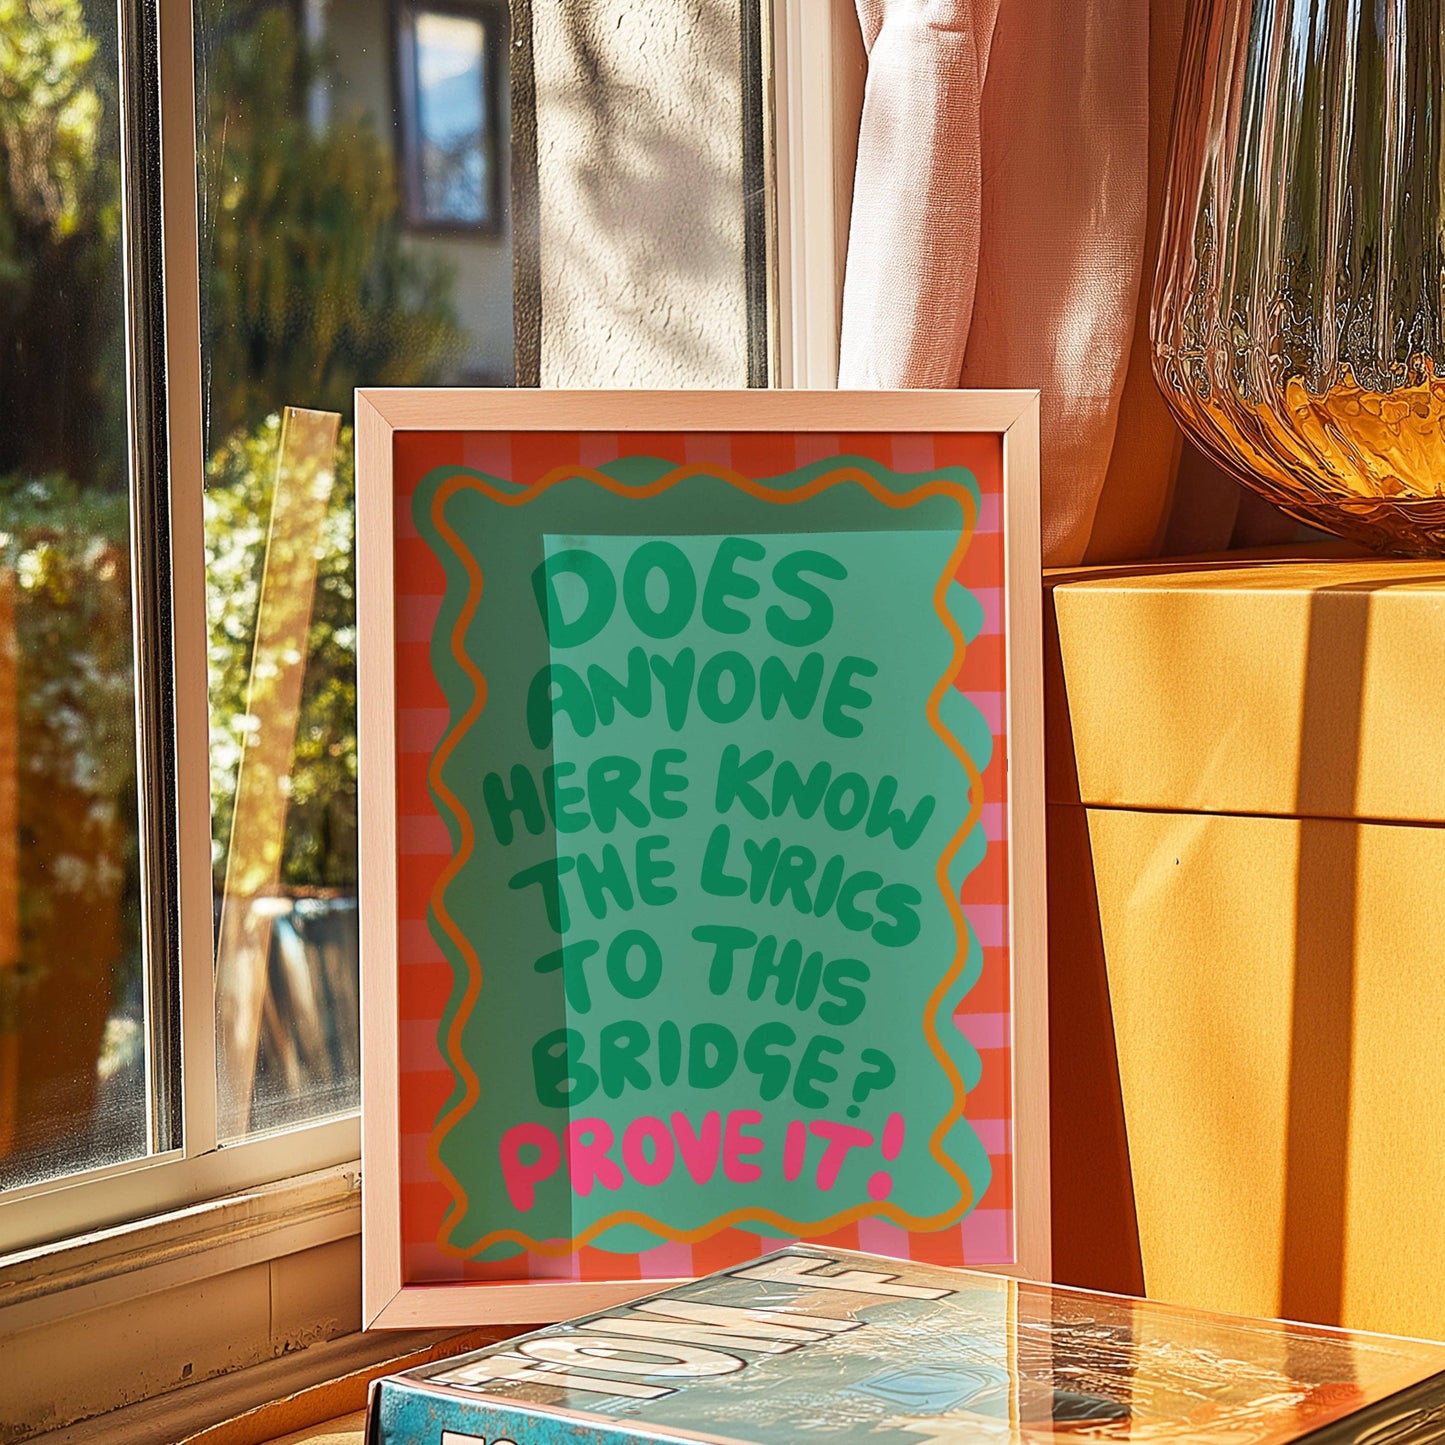 DOES
ANYONE
HERE KNOW
THE LYRICS
TO THIS
BRIDGE?
PROVE IT!